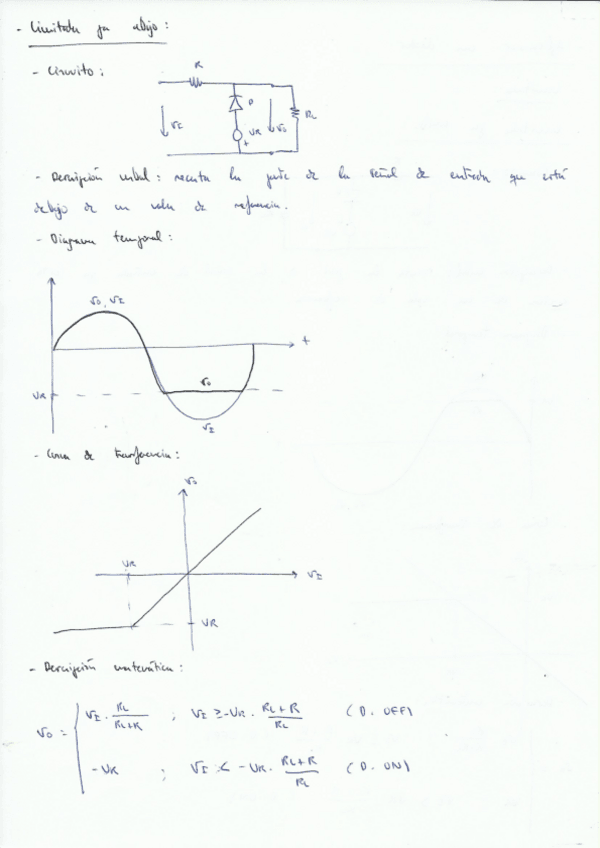 - Limitador por abajo:
- Circuito:
R
D
RL
vI
VR
vO
+
- Descripción verbal: recorta la parte de la señal de entrada que está
debajo de un valor de referencia.
- Diagrama temporal:
vO, vI
t
vO
VR
vI
- Curva de transferencia:
vO
VR
vI
VR
- Descripción matemática:
vI · RL/(RL+R) ; vI ≥ -VR · (RL+R)/RL (D. OFF)
vO =
-VR ; vI < -VR · (RL+R)/RL (D. ON)